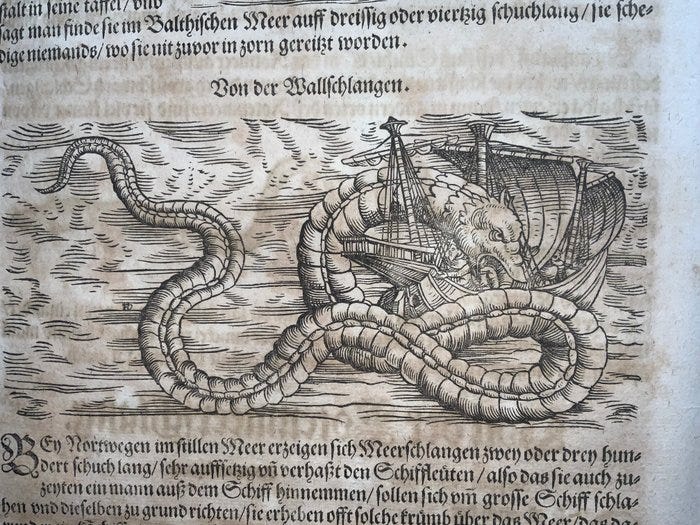 stalt in seine taffel / vnd
sagt man finde sie im Balthischen Meer auff dreissig oder viertzig schuchlang / sie sche-
dige niemands / wo sie nit zuvor in zorn gereitzt worden.
Von der Wallschlangen.
BEy Nortwegen im stillen Meer erzeigen sich Meerschlangen zwey oder drey hun-
dert schuch lang / sehr auffsetzig vñ verhaßt den Schiffleüten / also das sie auch zu-
zeyten ein mann auß dem Schiff hinnemmen / sollen sich vm̃ grosse Schiff schla-
hen vnd dieselben zu grund richten / sie erheben offt solche krümb über das Meer /